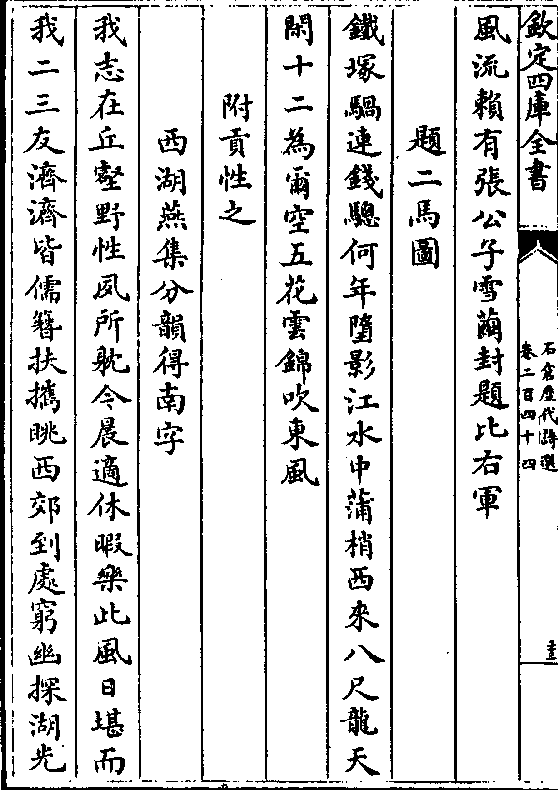 欽定四庫全書
石倉歷代詩選
卷二百四十四
風流賴有張公子雪繭封題比右軍
題二馬圖
鐵塚騧連錢驄何年墮影江水中蒲梢西來八尺龍天
閑十二為爾空五花雲錦吹東風
附貢性之
西湖燕集分韻得南字
我志在丘壑野性夙所躭今晨適休暇樂此風日堪而
我二三友濟濟皆儒簪扶攜眺西郊到處窮幽探湖光